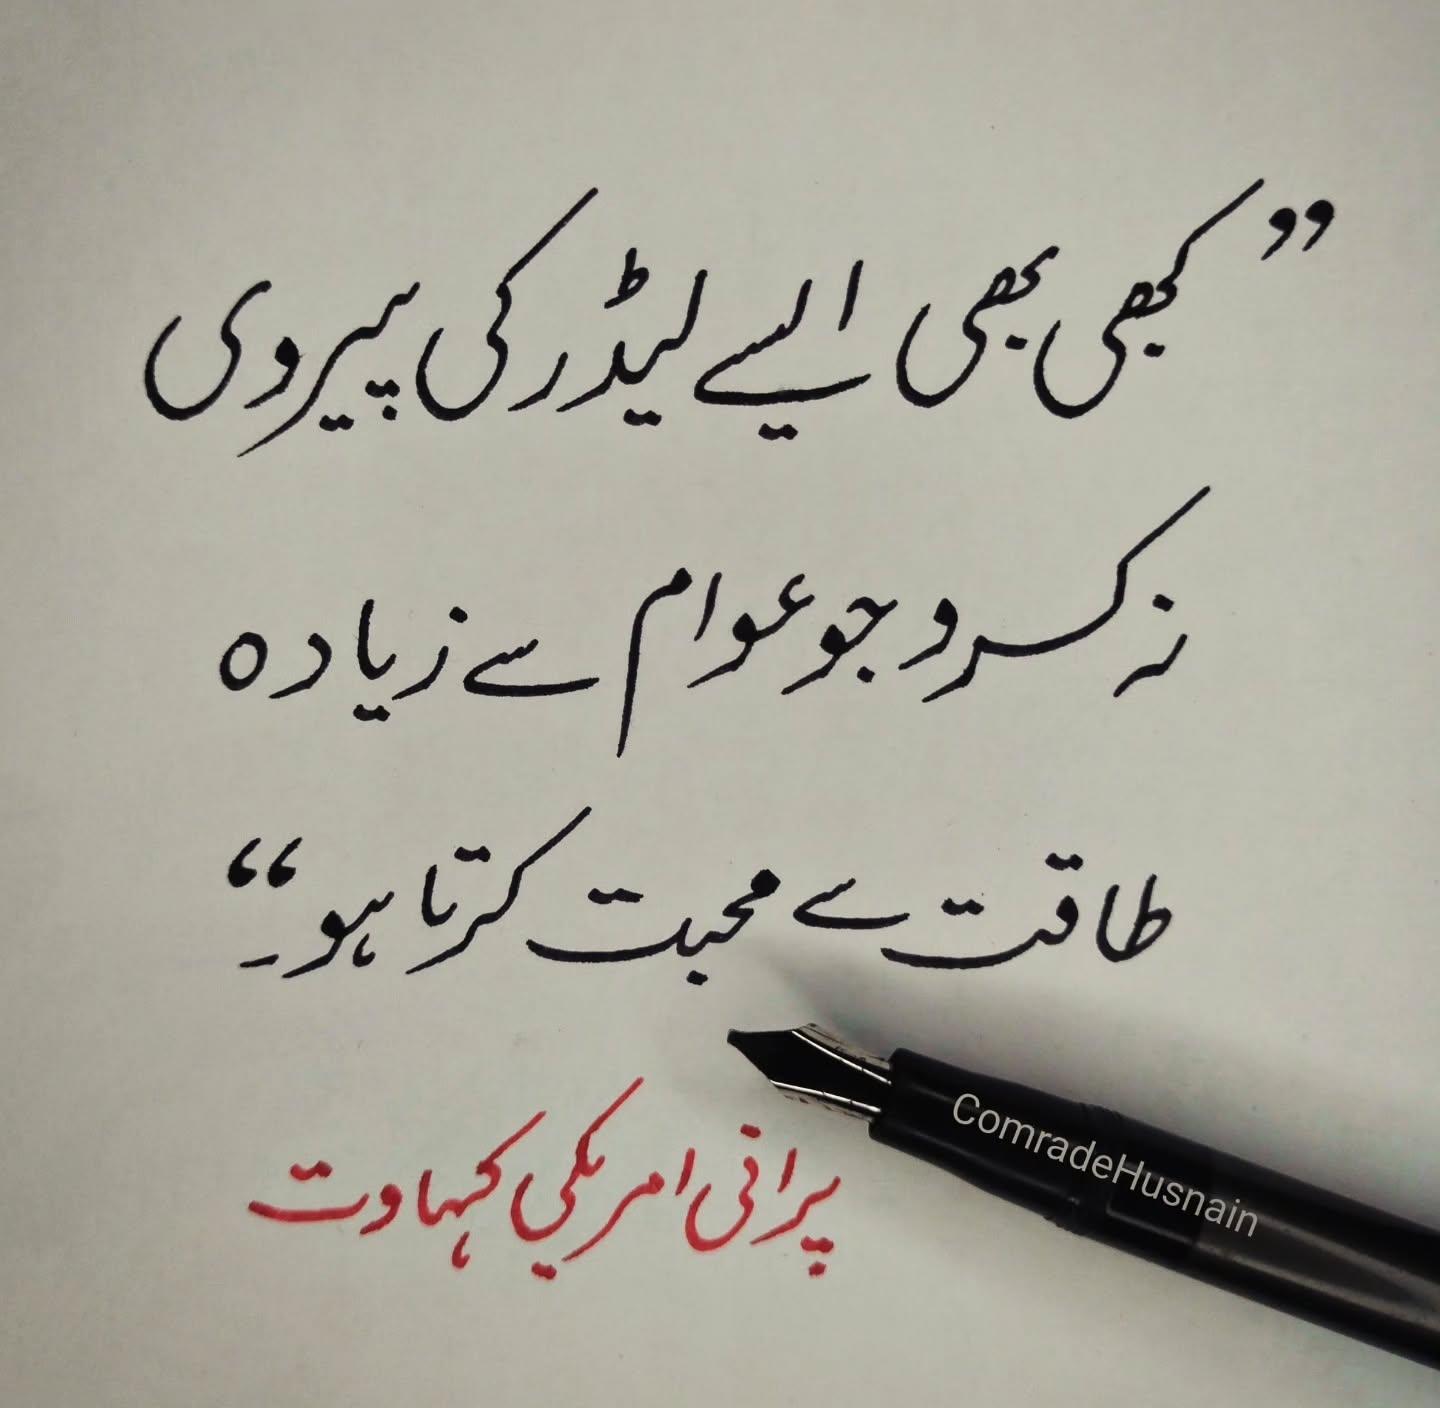 ”کبھی بھی ایسے لیڈر کی پیروی
نہ کرو جو عوام سے زیادہ
طاقت سے محبت کرتا ہو۔“
پرانی امریکی کہاوت
ComradeHusnain